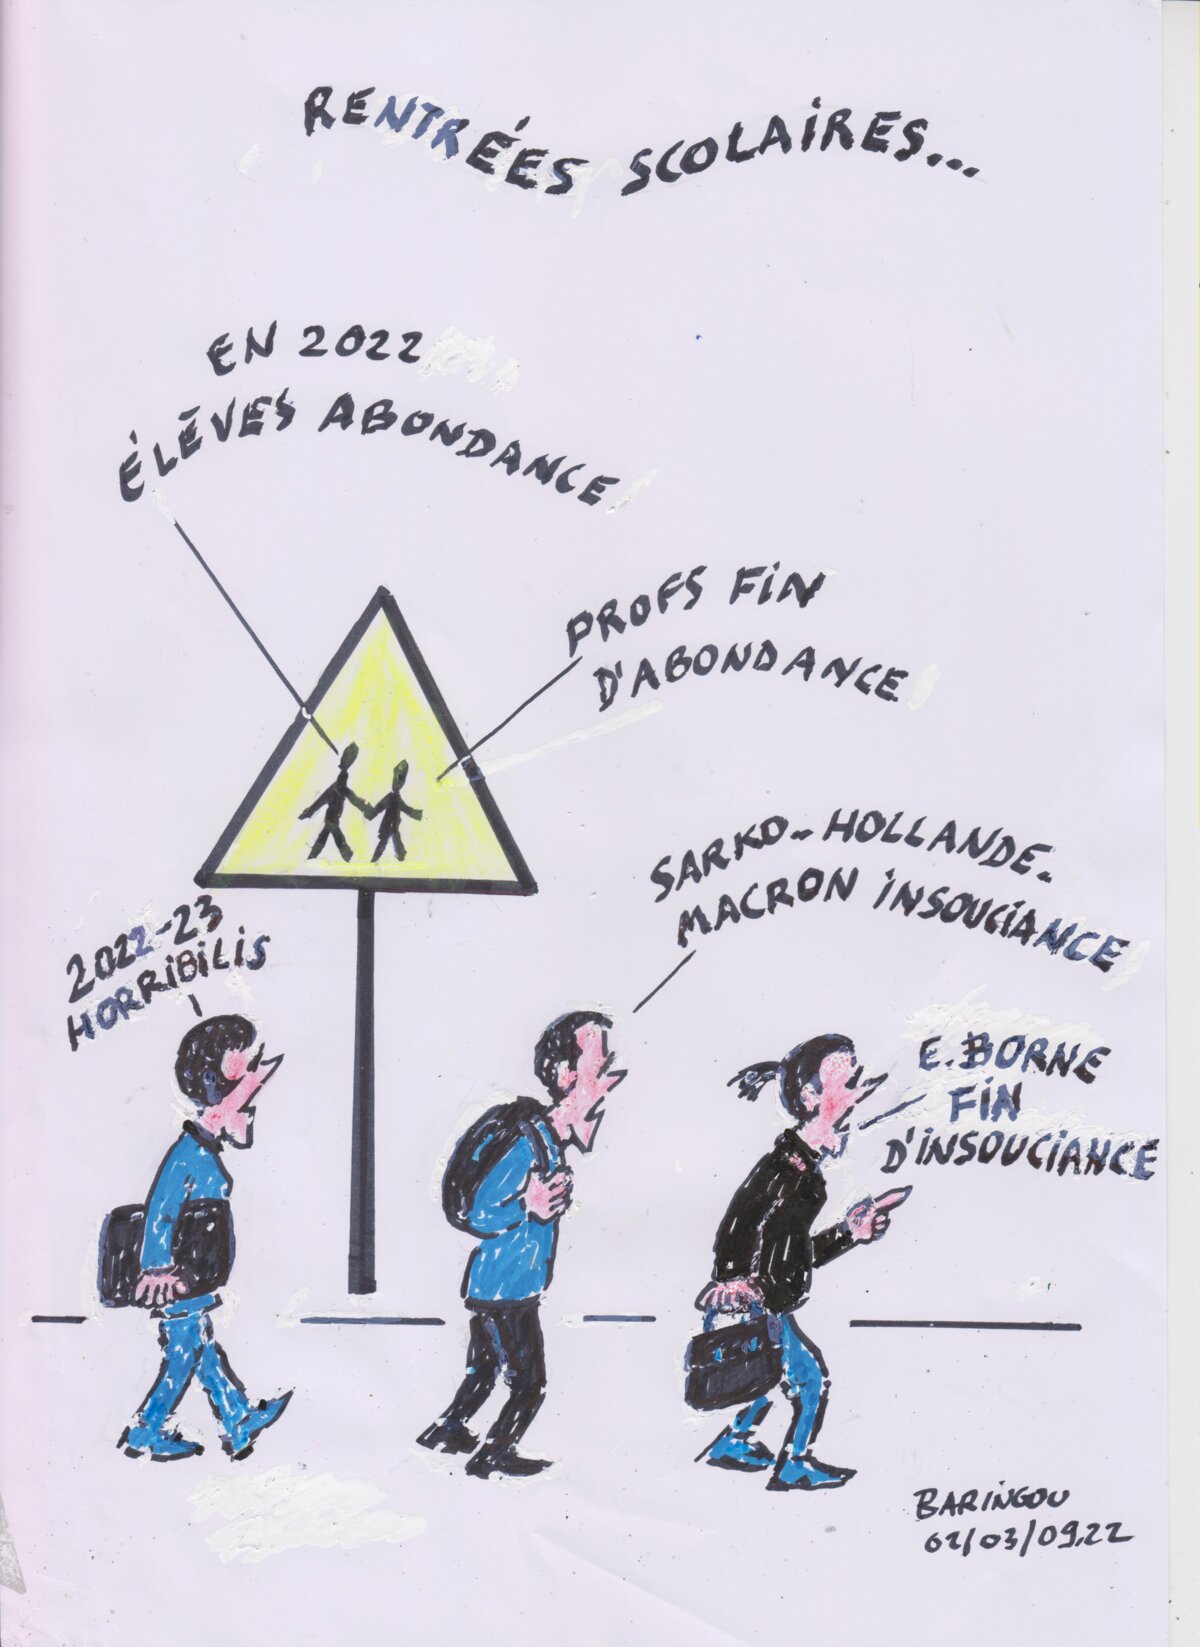 RENTRÉES SCOLAIRES...
EN 2022
ÉLÈVES ABONDANCE
PROFS FIN
D'ABONDANCE
SARKO-HOLLANDE-
MACRON INSOUCIANCE
2022-23
HORRIBILIS
E. BORNE
FIN
D'INSOUCIANCE
BARINGOU
02/03/09.22